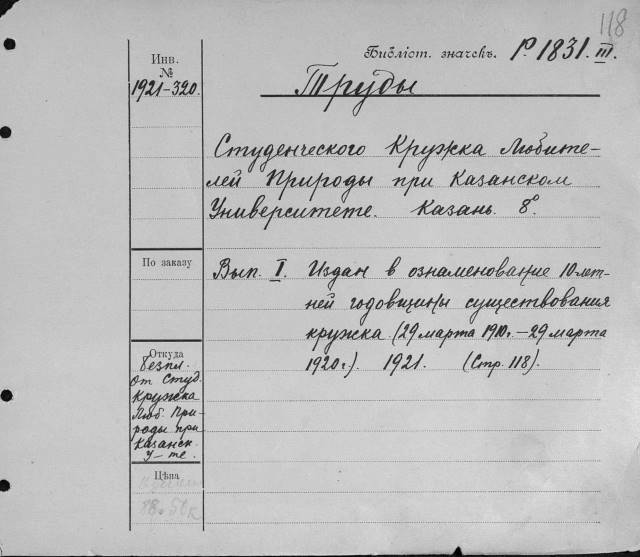 118
Инв.
№
1921-320.
Библіот. значекъ. Р. 1831. III.
Труды
Студенческого Кружка Любите-
лей Природы при Казанском
Университете. Казань. 8°
По заказу
Вып. I. Издан в ознаменование 10 лет-
ней годовщины существования
кружка (29 марта 1910 г. — 29 марта
1920 г.). 1921. (Стр. 118).
Откуда
безпл.
от Студ.
Кружка
Люб. При-
роды при
Казанск.
У-те.
Цѣна